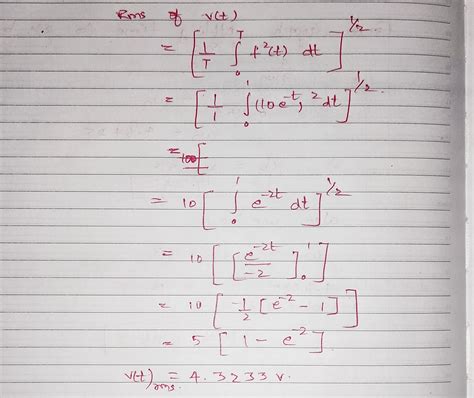 Rms of v(t)
= [ 1/T ∫₀ᵀ f²(t) dt ]^1/2
= [ 1/1 ∫₀¹ (10e^-t)² dt ]^1/2.
= 10 [ ∫₀¹ e^-2t dt ]^1/2
= 10 [ [ e^-2t / -2 ]₀¹ ]
= 10 [ -1/2 [ e^-2 - 1 ] ]
= 5 [ 1 - e^-2 ]
v(t)rms. = 4.3233 v.